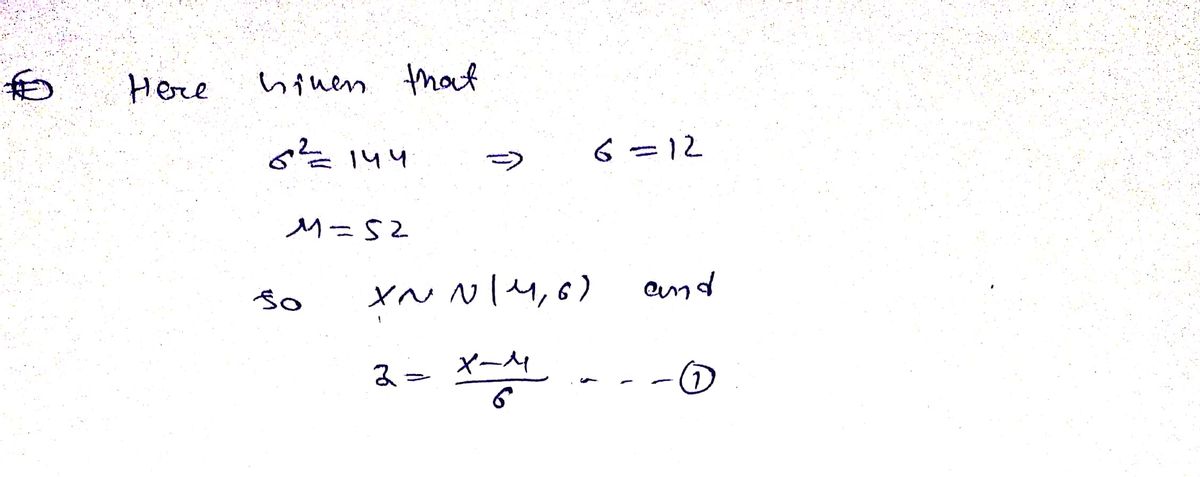 Here Given that
σ² = 144 ⇒ σ = 12
μ = 52
so X ~ N(μ, σ) and
Z = (X - μ) / σ - - - - ①